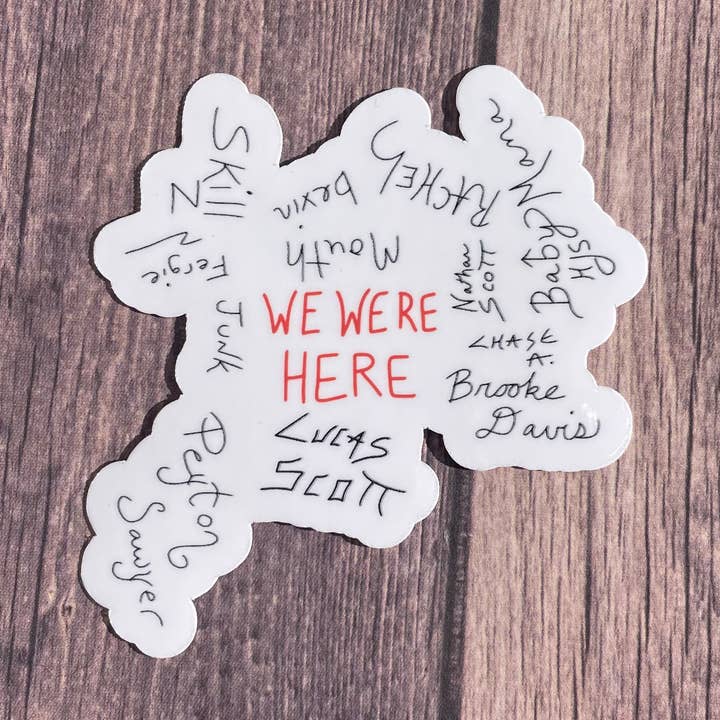 Skillz
Fergie
Junk
bevin
Mouth
RACHEL
Nathan
SCOTT
Baby
CHASE
A.
WE WERE
HERE
Brooke
Davis
LUCAS
SCOTT
Peyton
Sawyer